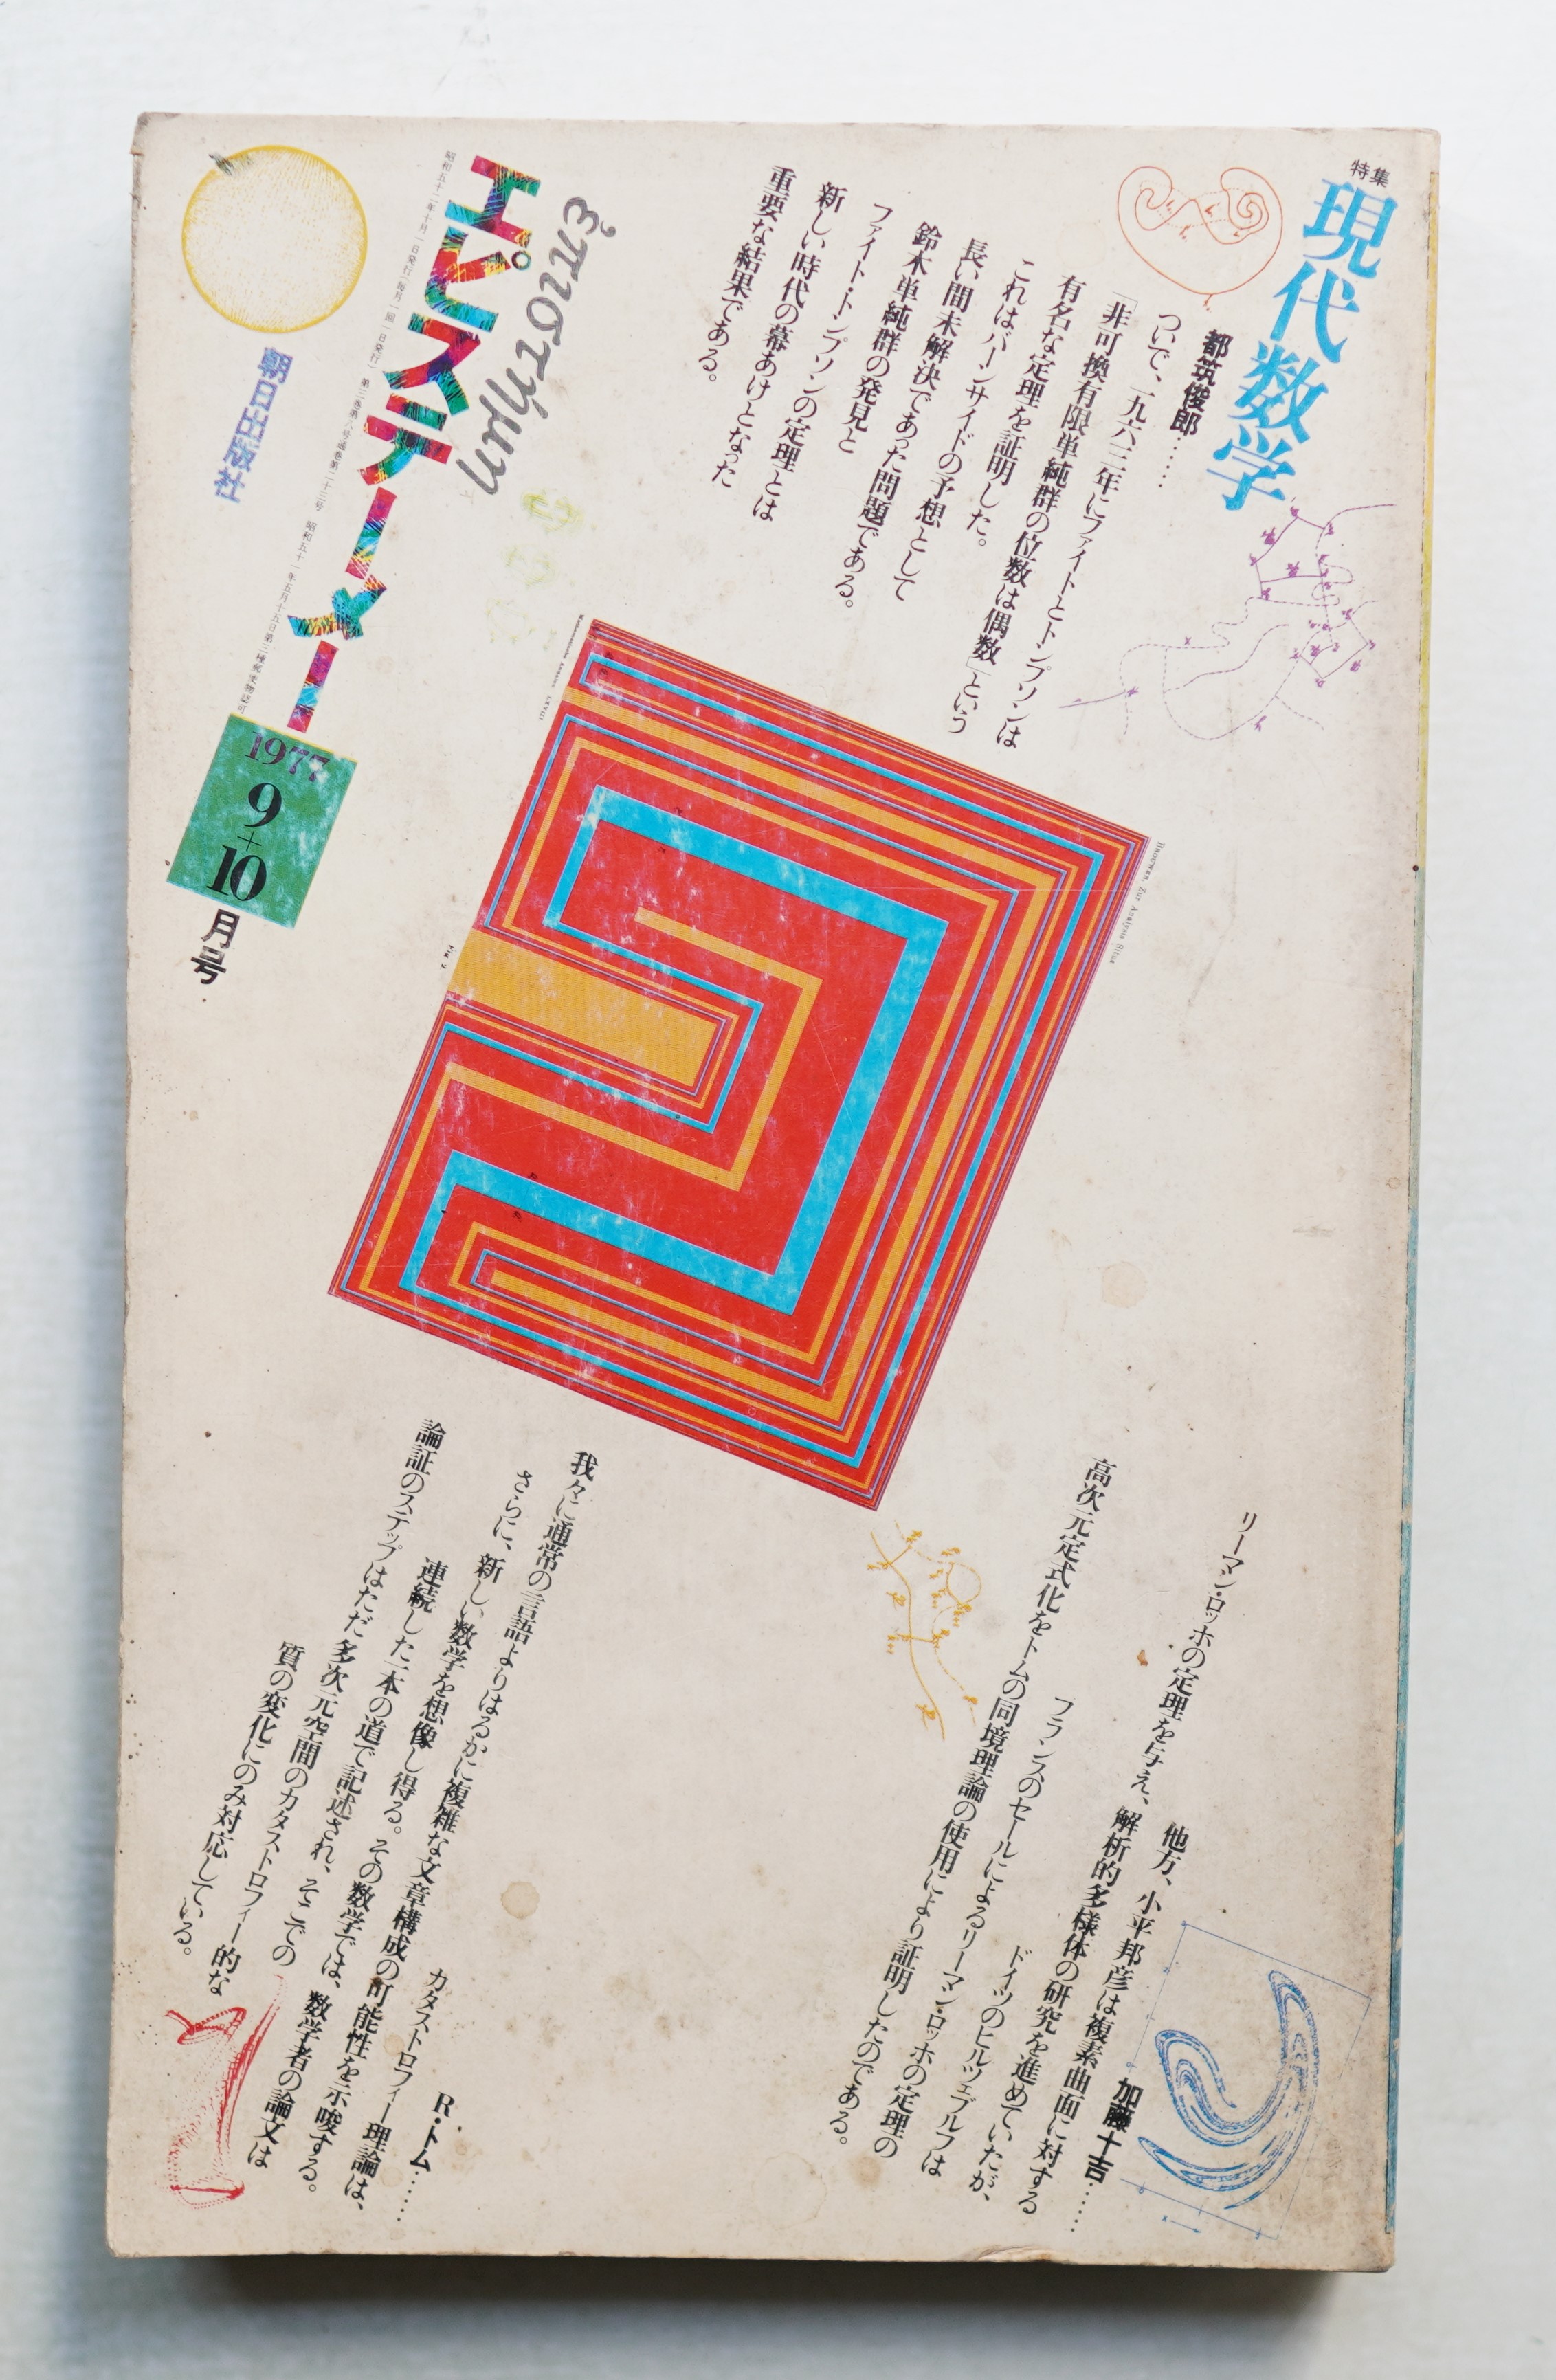 特集
現代数学
都筑俊郎……
ついで、一九六三年にファイトとトンプソンは
「非可換有限単純群の位数は偶数」という
有名な定理を証明した。
これはバーンサイドの予想として
長い間未解決であった問題である。
鈴木単純群の発見と
ファイト・トンプソンの定理とは
新しい時代の幕あけとなった
重要な結果である。
ἐπιστήμη
エピステーメー
昭和五十二年十月一日発行(毎月一回一日発行) 第三巻第八号通巻第二十三号 昭和五十一年五月十五日第三種郵便物認可
1977
9
+
10
月号
朝日出版社
Hnoewan, Zur Analysis Situs
加藤十吉……
他方、小平邦彦は複素曲面に対する
リーマン・ロッホの定理を与え、解析的多様体の研究を進めていたが、
ドイツのヒルツェブルフは
フランスのセールによるリーマン・ロッホの定理の
高次元定式化をトムの同境理論の使用により証明したのである。
R・トム……
カタストロフィー理論は、
我々に通常の言語よりはるかに複雑な文章構成の可能性を示唆する。
さらに、新しい数学を想像し得る。その数学では、数学者の論文は
連続した一本の道で記述され、そこでの
論証のステップはただ多次元空間のカタストロフィー的な
質の変化にのみ対応している。